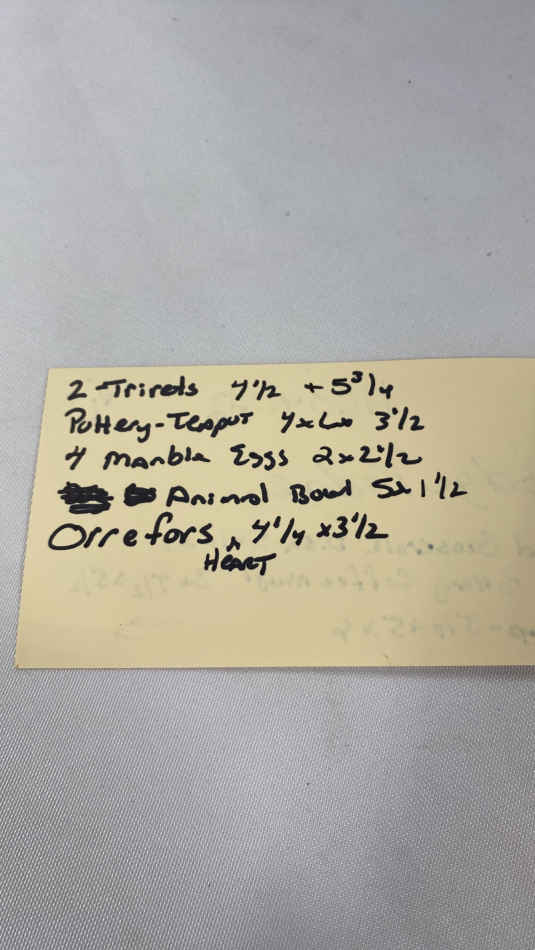 2 Trivets 4 1/2 + 5 3/4
Pottery-Teapot 4x6x 3 1/2
4 Marble Eggs 2x2 1/2
Animal Bowl 5x1 1/2
Orrefors 4 1/4 x3 1/2
^
HEART